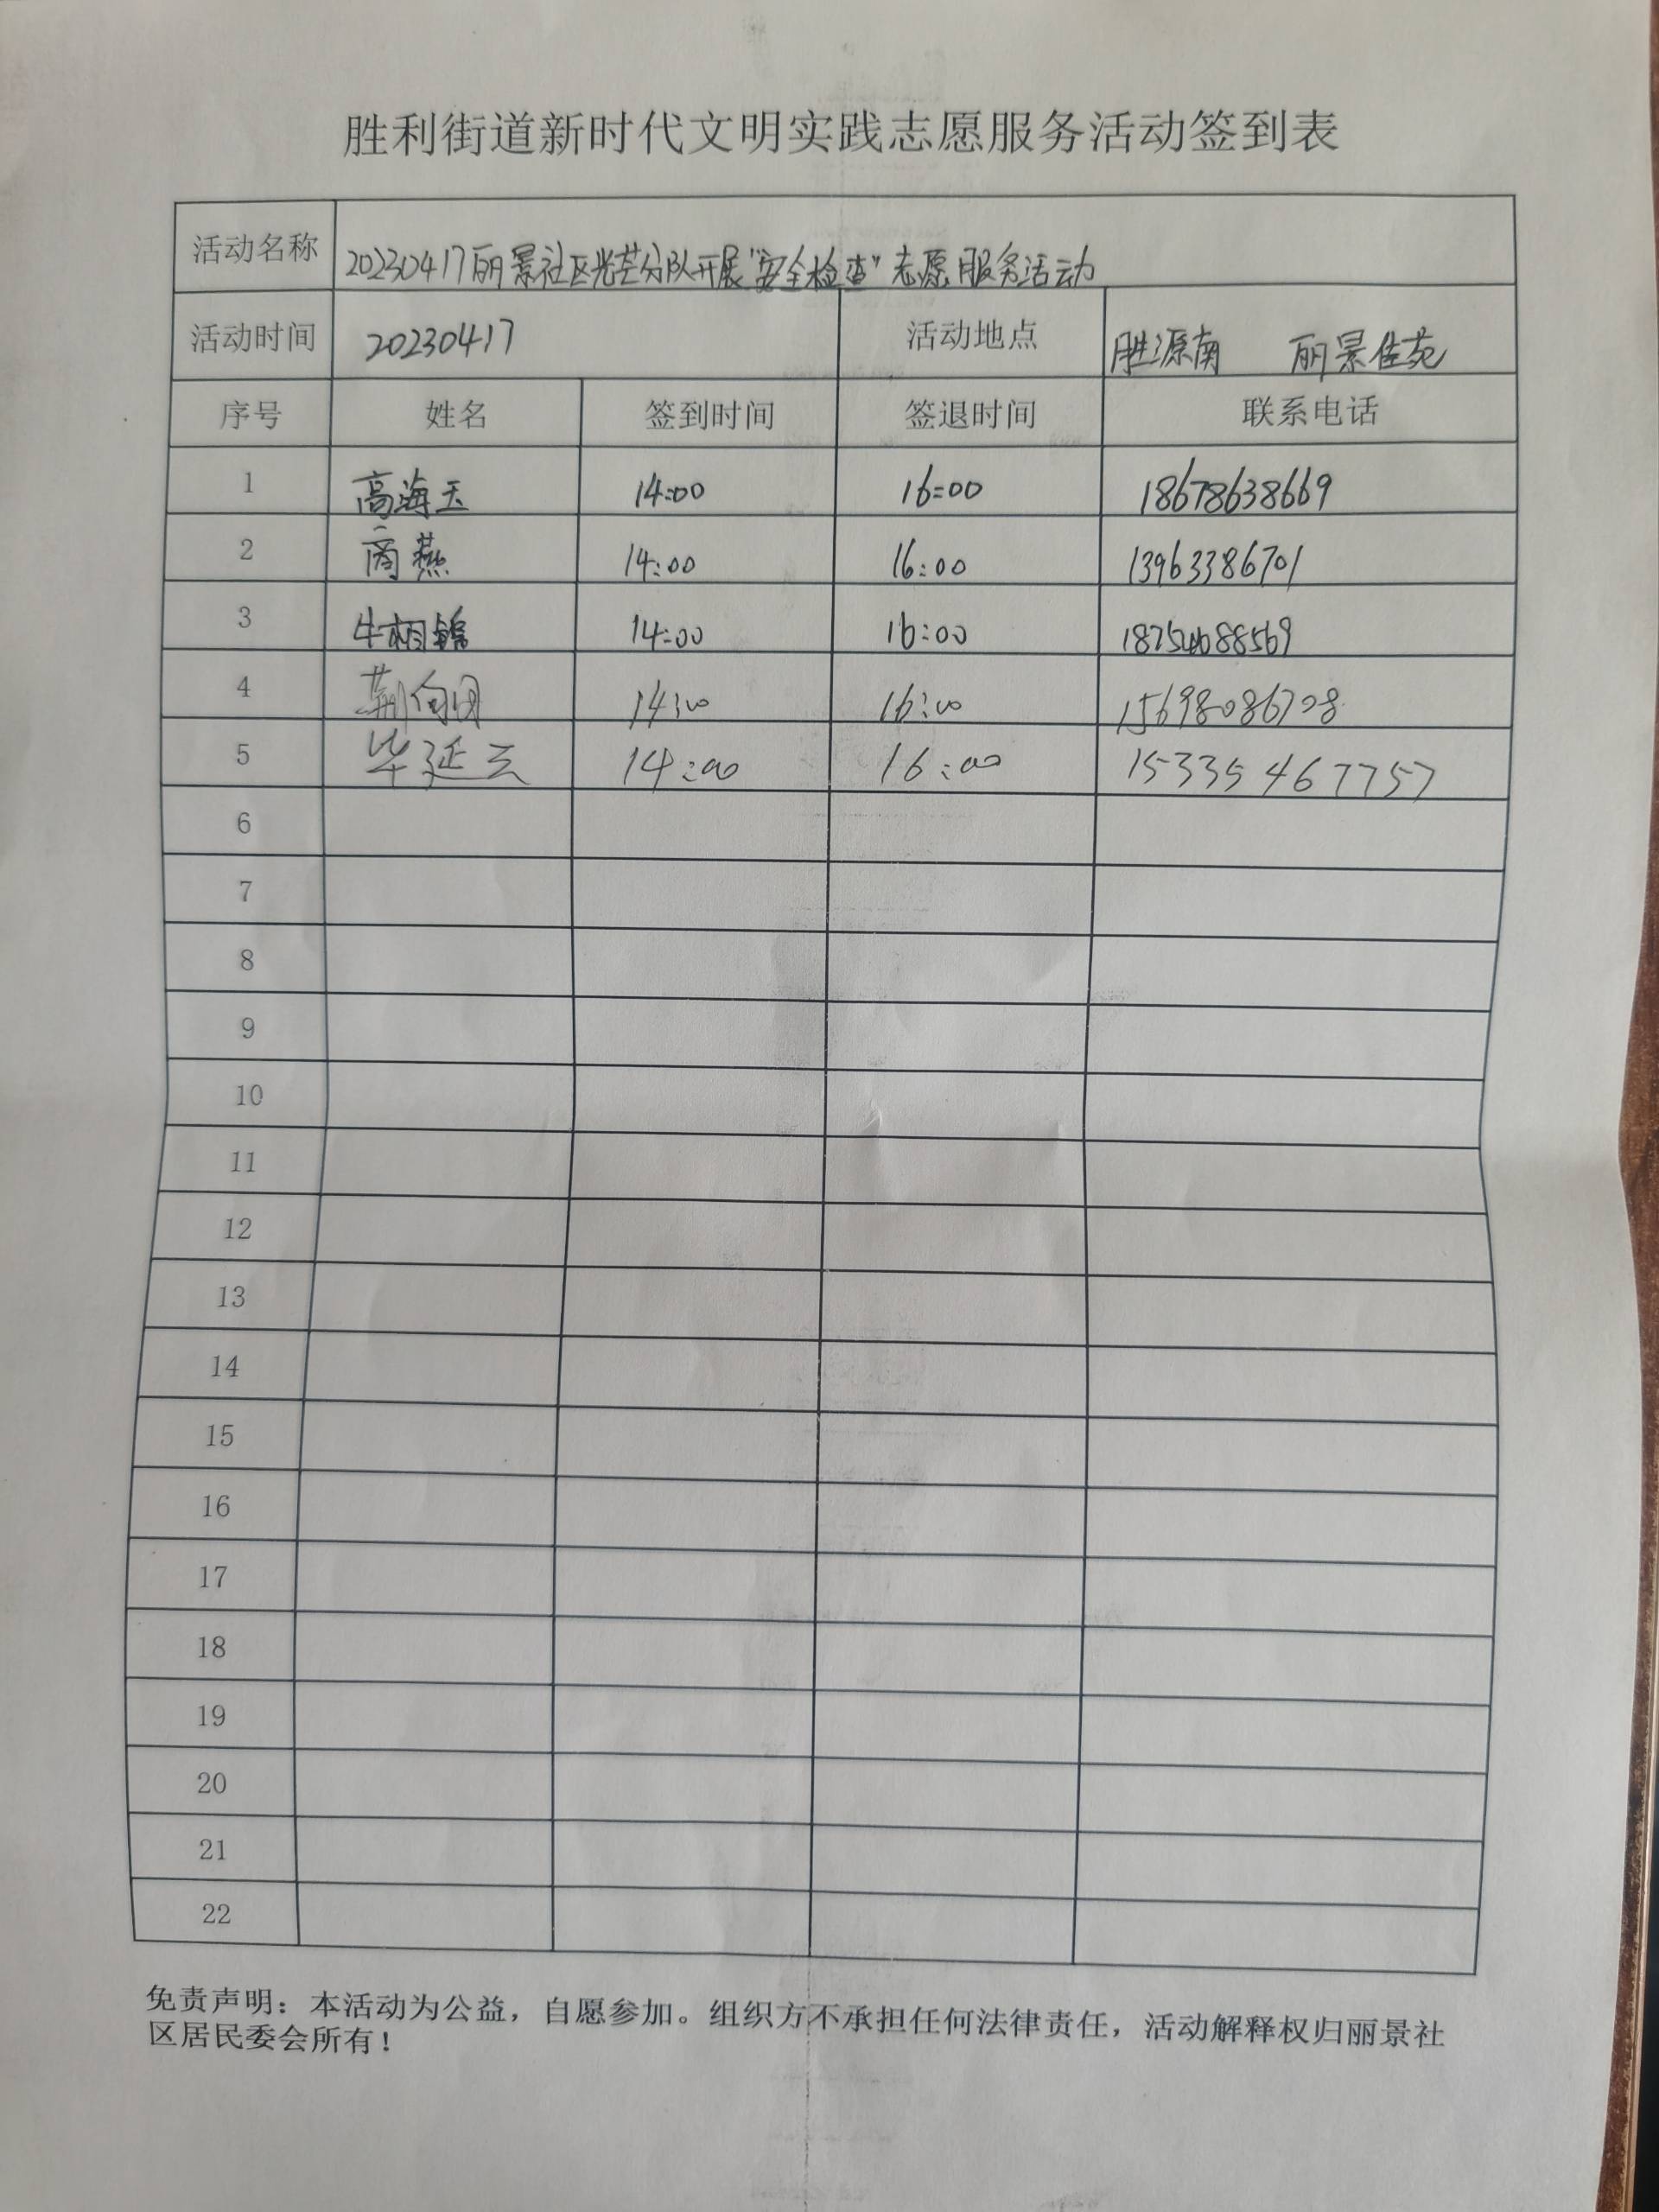 胜利街道新时代文明实践志愿服务活动签到表
活动名称 20230417丽景社区光芒分队开展"安全检查"志愿服务活动
活动时间 20230417 活动地点 胜源南 丽景佳苑
序号 姓名 签到时间 签退时间 联系电话
1 高海玉 14:00 16:00 18678638669
2 商燕 14:00 16:00 13963386701
3 牛相锦 14:00 16:00
4 荆向团 14:00 16:00 15698086708
5 毕延云 14:00 16:00 15335467757
6
7
8
9
10
11
12
13
14
15
16
17
18
19
20
21
22
免责声明：本活动为公益，自愿参加。组织方不承担任何法律责任，活动解释权归丽景社
区居民委会所有！